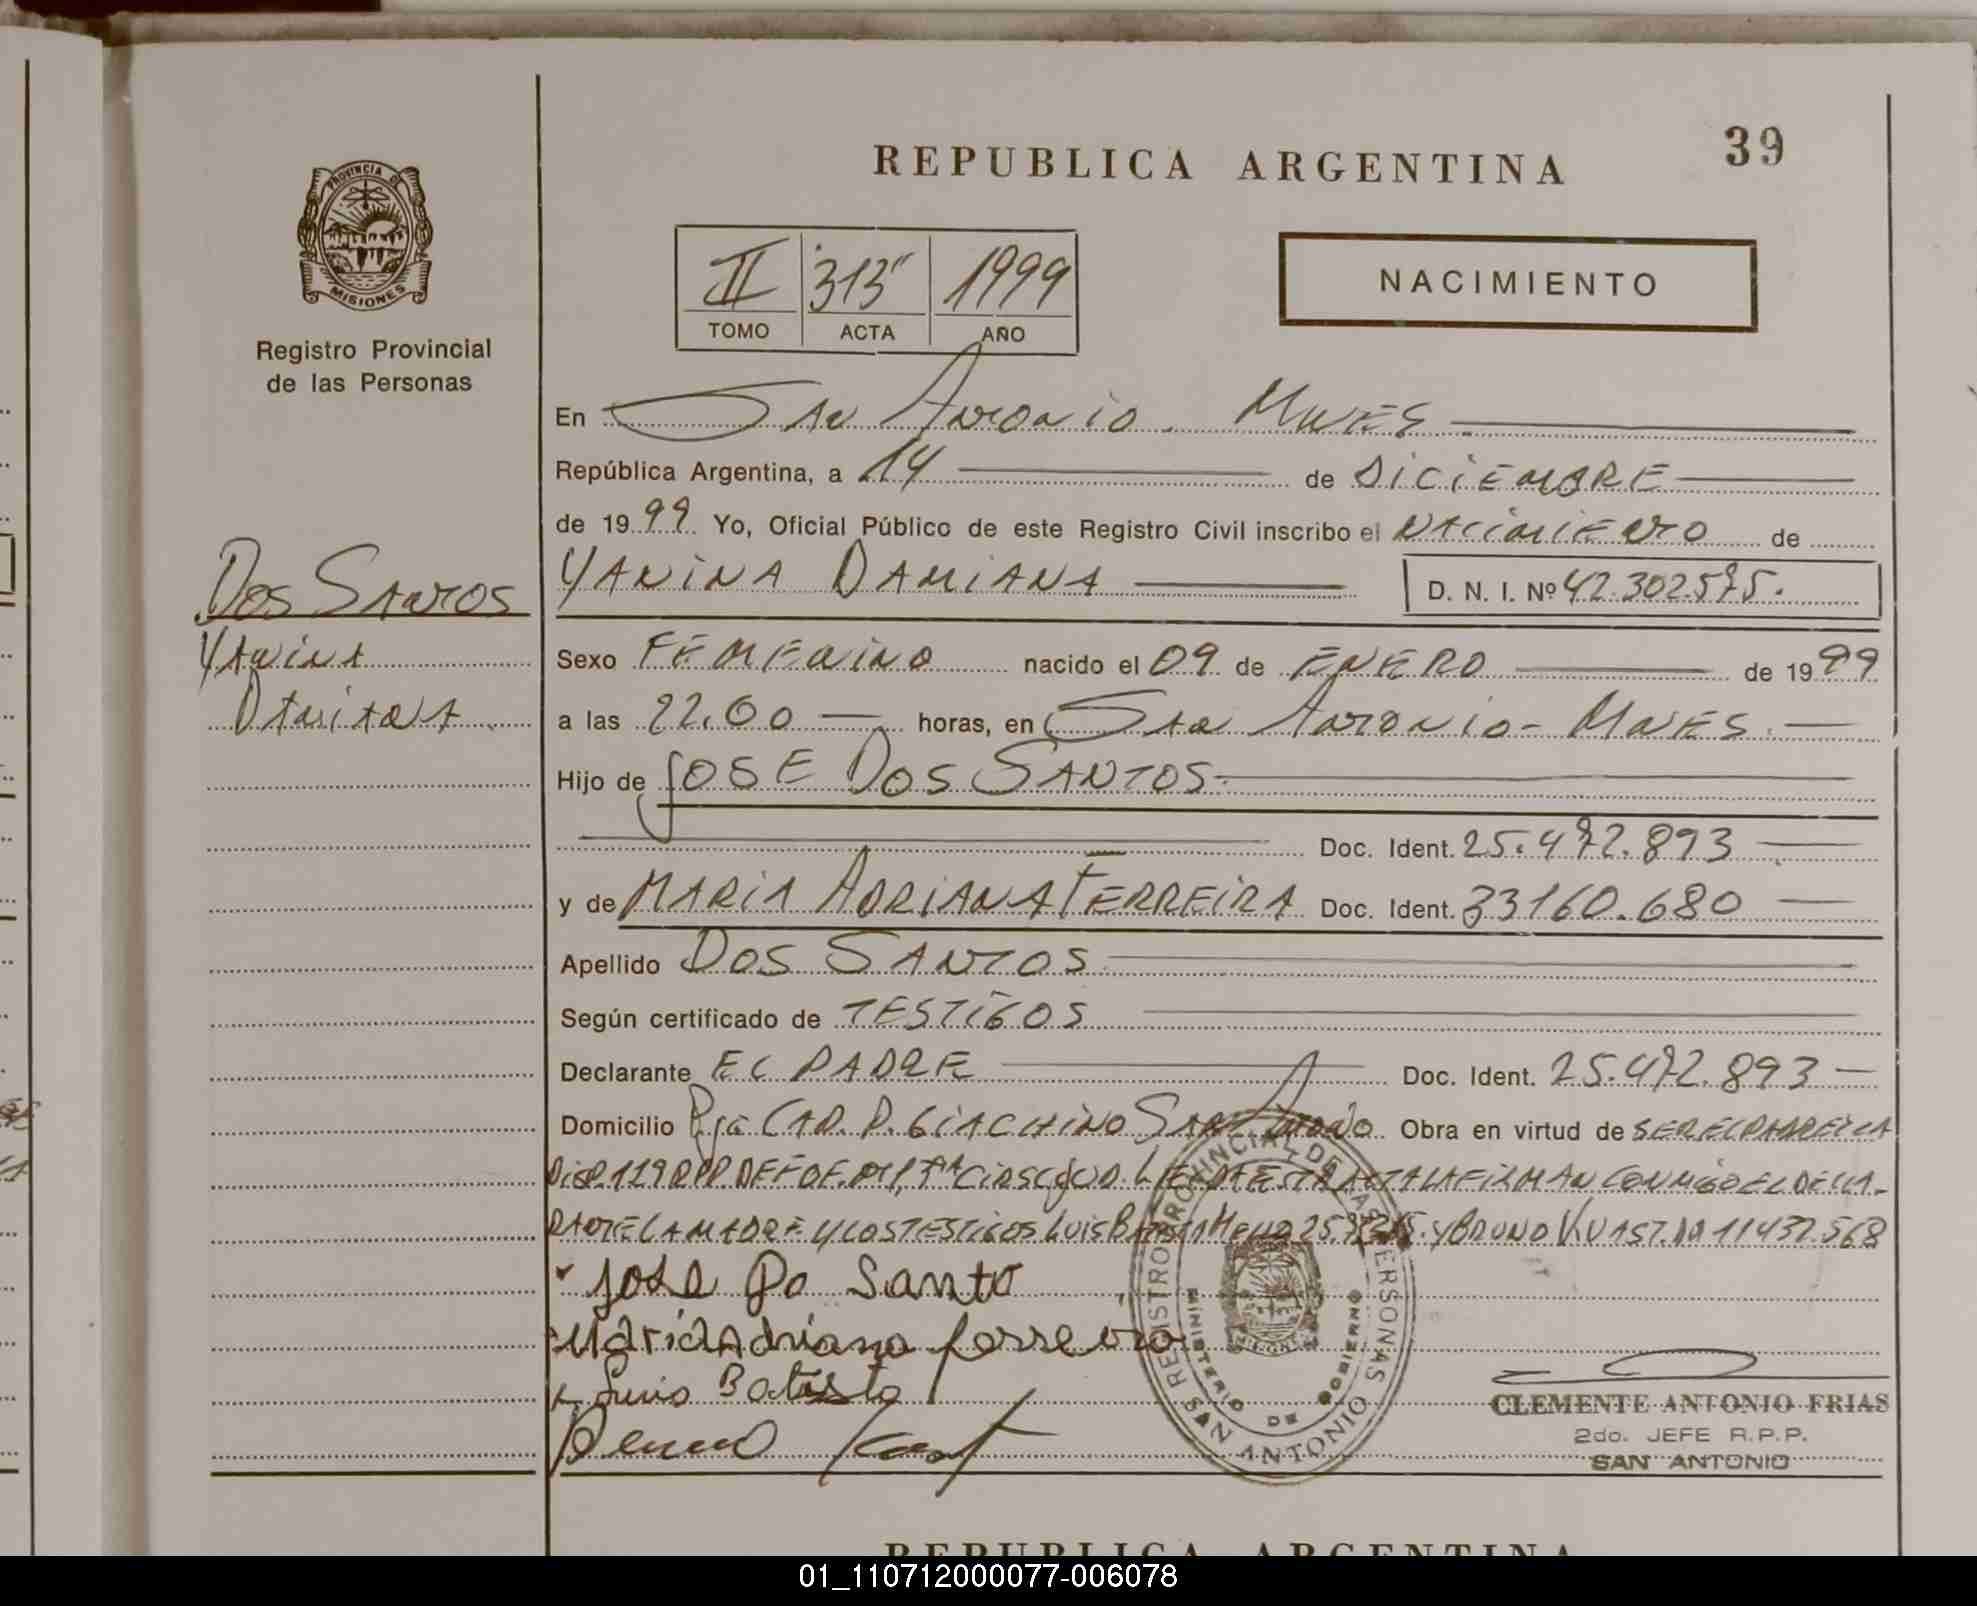 39
REPUBLICA ARGENTINA
PROVINCIA DE
MISIONES
Registro Provincial
de las Personas
II "313" 1999
TOMO ACTA AÑO
NACIMIENTO
En San Antonio. Mnes.
República Argentina, a 14 de DICIEMBRE
de 1999 Yo, Oficial Público de este Registro Civil inscribo el NACIMIENTO de
Dos Santos
Yanina
Damiana
YANINA DAMIANA D. N. I. Nº 42.302.575.
Sexo FEMENINO nacido el 09 de ENERO de 1999
a las 22.00 horas, en San Antonio - Mnes.
Hijo de JOSE DOS SANTOS
Doc. Ident. 25.472.893
y de MARIA ADRIANA FERREIRA Doc. Ident. 33160.680
Apellido DOS SANTOS
Según certificado de TESTIGOS
Declarante EL PADRE Doc. Ident. 25.472.893
Domicilio Pje CAP. P. GIACHINO SAN Antonio Obra en virtud de SER EL PADRE Y LA
DISP. 129 RPP. DE F. LEIDA ESTA ACTA LA FIRMAN CONMIGO EL DECLA-
RANTE LA MADRE Y LOS TESTIGOS LUIS BATISTA MELLO Y BRUNO KUAST. DA 11437.568
Jose Do Santo
Maria Adriana ferreira
Luis Batista
REGISTRO PROVINCIAL DE LAS PERSONAS
MINISTERIO DE GOBIERNO
SAN ANTONIO
CLEMENTE ANTONIO FRIAS
2do. JEFE R.P.P.
SAN ANTONIO
REPUBLICA ARGENTINA
01_110712000077-006078